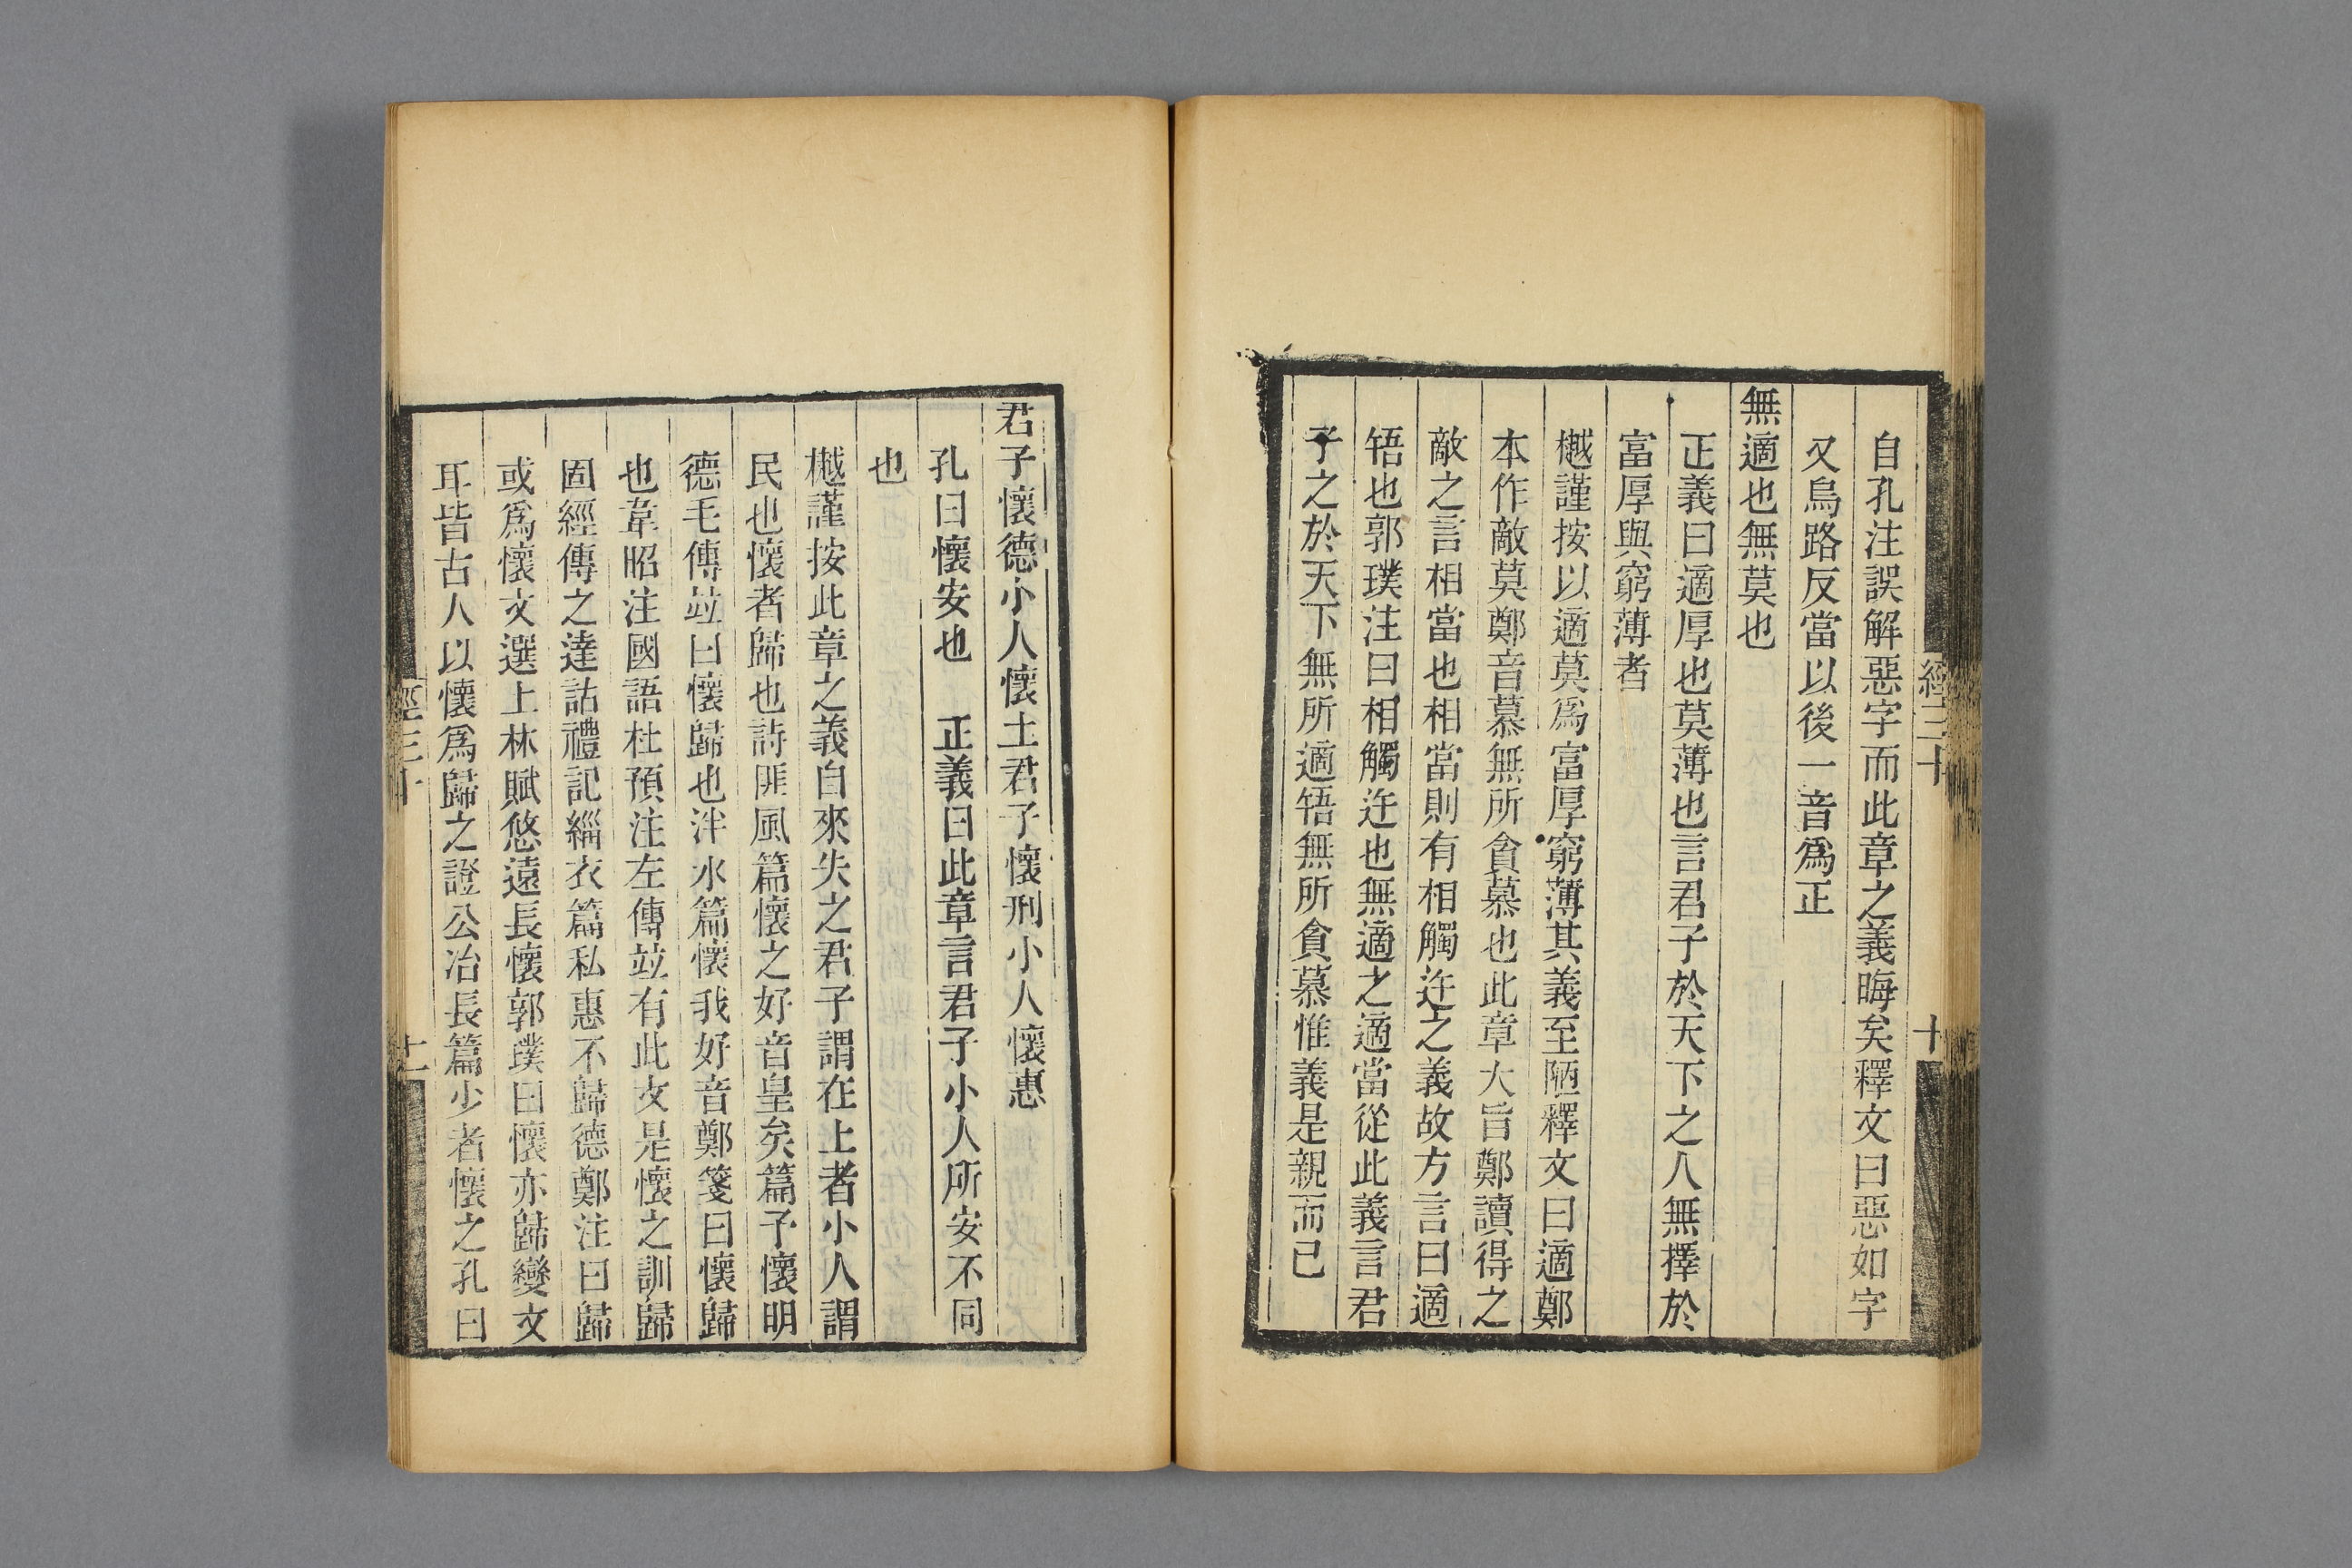 經三十
十
自孔注誤解惡字而此章之義晦矣釋文曰惡如字
又烏路反當以後一音爲正
無適也無莫也
正義曰適厚也莫薄也言君子於天下之人無擇於
富厚與窮薄者
樾謹按以適莫爲富厚窮薄其義至陋釋文曰適鄭
本作敵莫鄭音慕無所貪慕也此章大旨鄭讀得之
敵之言相當也相當則有相觸迕之義故方言曰適
牾也郭璞注曰相觸迕也無適之適當從此義言君
子之於天下無所適牾無所貪慕惟義是親而已
君子懷德小人懷土君子懷刑小人懷惠
孔曰懷安也　正義曰此章言君子小人所安不同
也
樾謹按此章之義自來失之君子謂在上者小人謂
民也懷者歸也詩匪風篇懷之好音皇矣篇予懷明
德毛傳竝曰懷歸也泮水篇懷我好音鄭箋曰懷歸
也韋昭注國語杜預注左傳竝有此文是懷之訓歸
固經傳之達詁禮記緇衣篇私惠不歸德鄭注曰歸
或爲懷文選上林賦悠遠長懷郭璞曰懷亦歸變文
耳皆古人以懷爲歸之證公冶長篇少者懷之孔曰
經三十